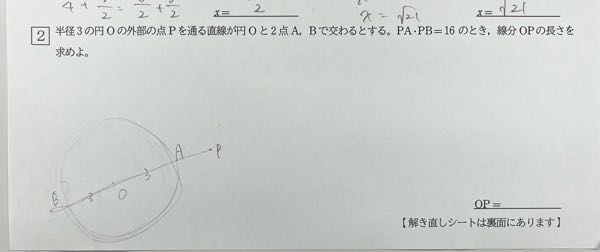 4 + 9/2 = 8/2 + 9/2
x= 2
x = √21
x= √21
2 半径3の円Oの外部の点Pを通る直線が円Oと2点A，Bで交わるとする。PA·PB=16のとき，線分OPの長さを
求めよ。
A
P
3
B
3
O
OP=
【解き直しシートは裏面にあります】